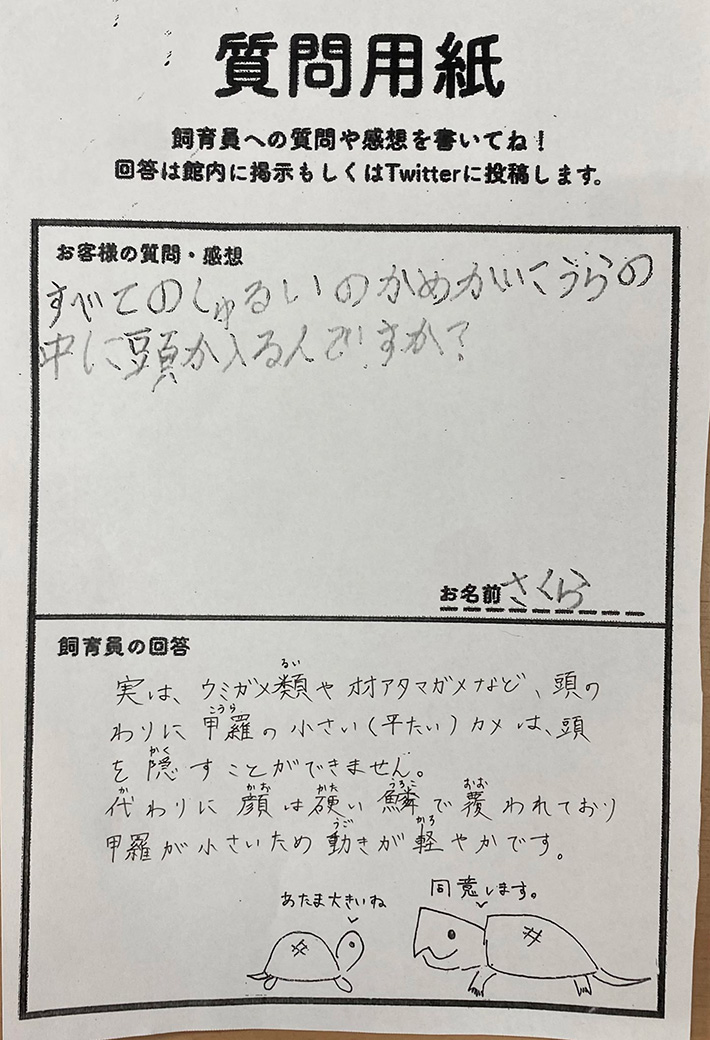 質問用紙
飼育員への質問や感想を書いてね!
回答は館内に掲示もしくはTwitterに投稿します。
お客様の質問・感想
すべてのしゅるいのかめがこうらの
中に頭が入るんですか?
お名前 さくら
飼育員の回答
実は、ウミガメ類や オオアタマガメなど、頭の
わりに 甲羅の 小さい(平たい) カメは、頭
を 隠すことができません。
代わりに 顔は硬い 鱗で覆われており
甲羅が小さいため 動きが軽やかです。
あたま大きいね
同意します。